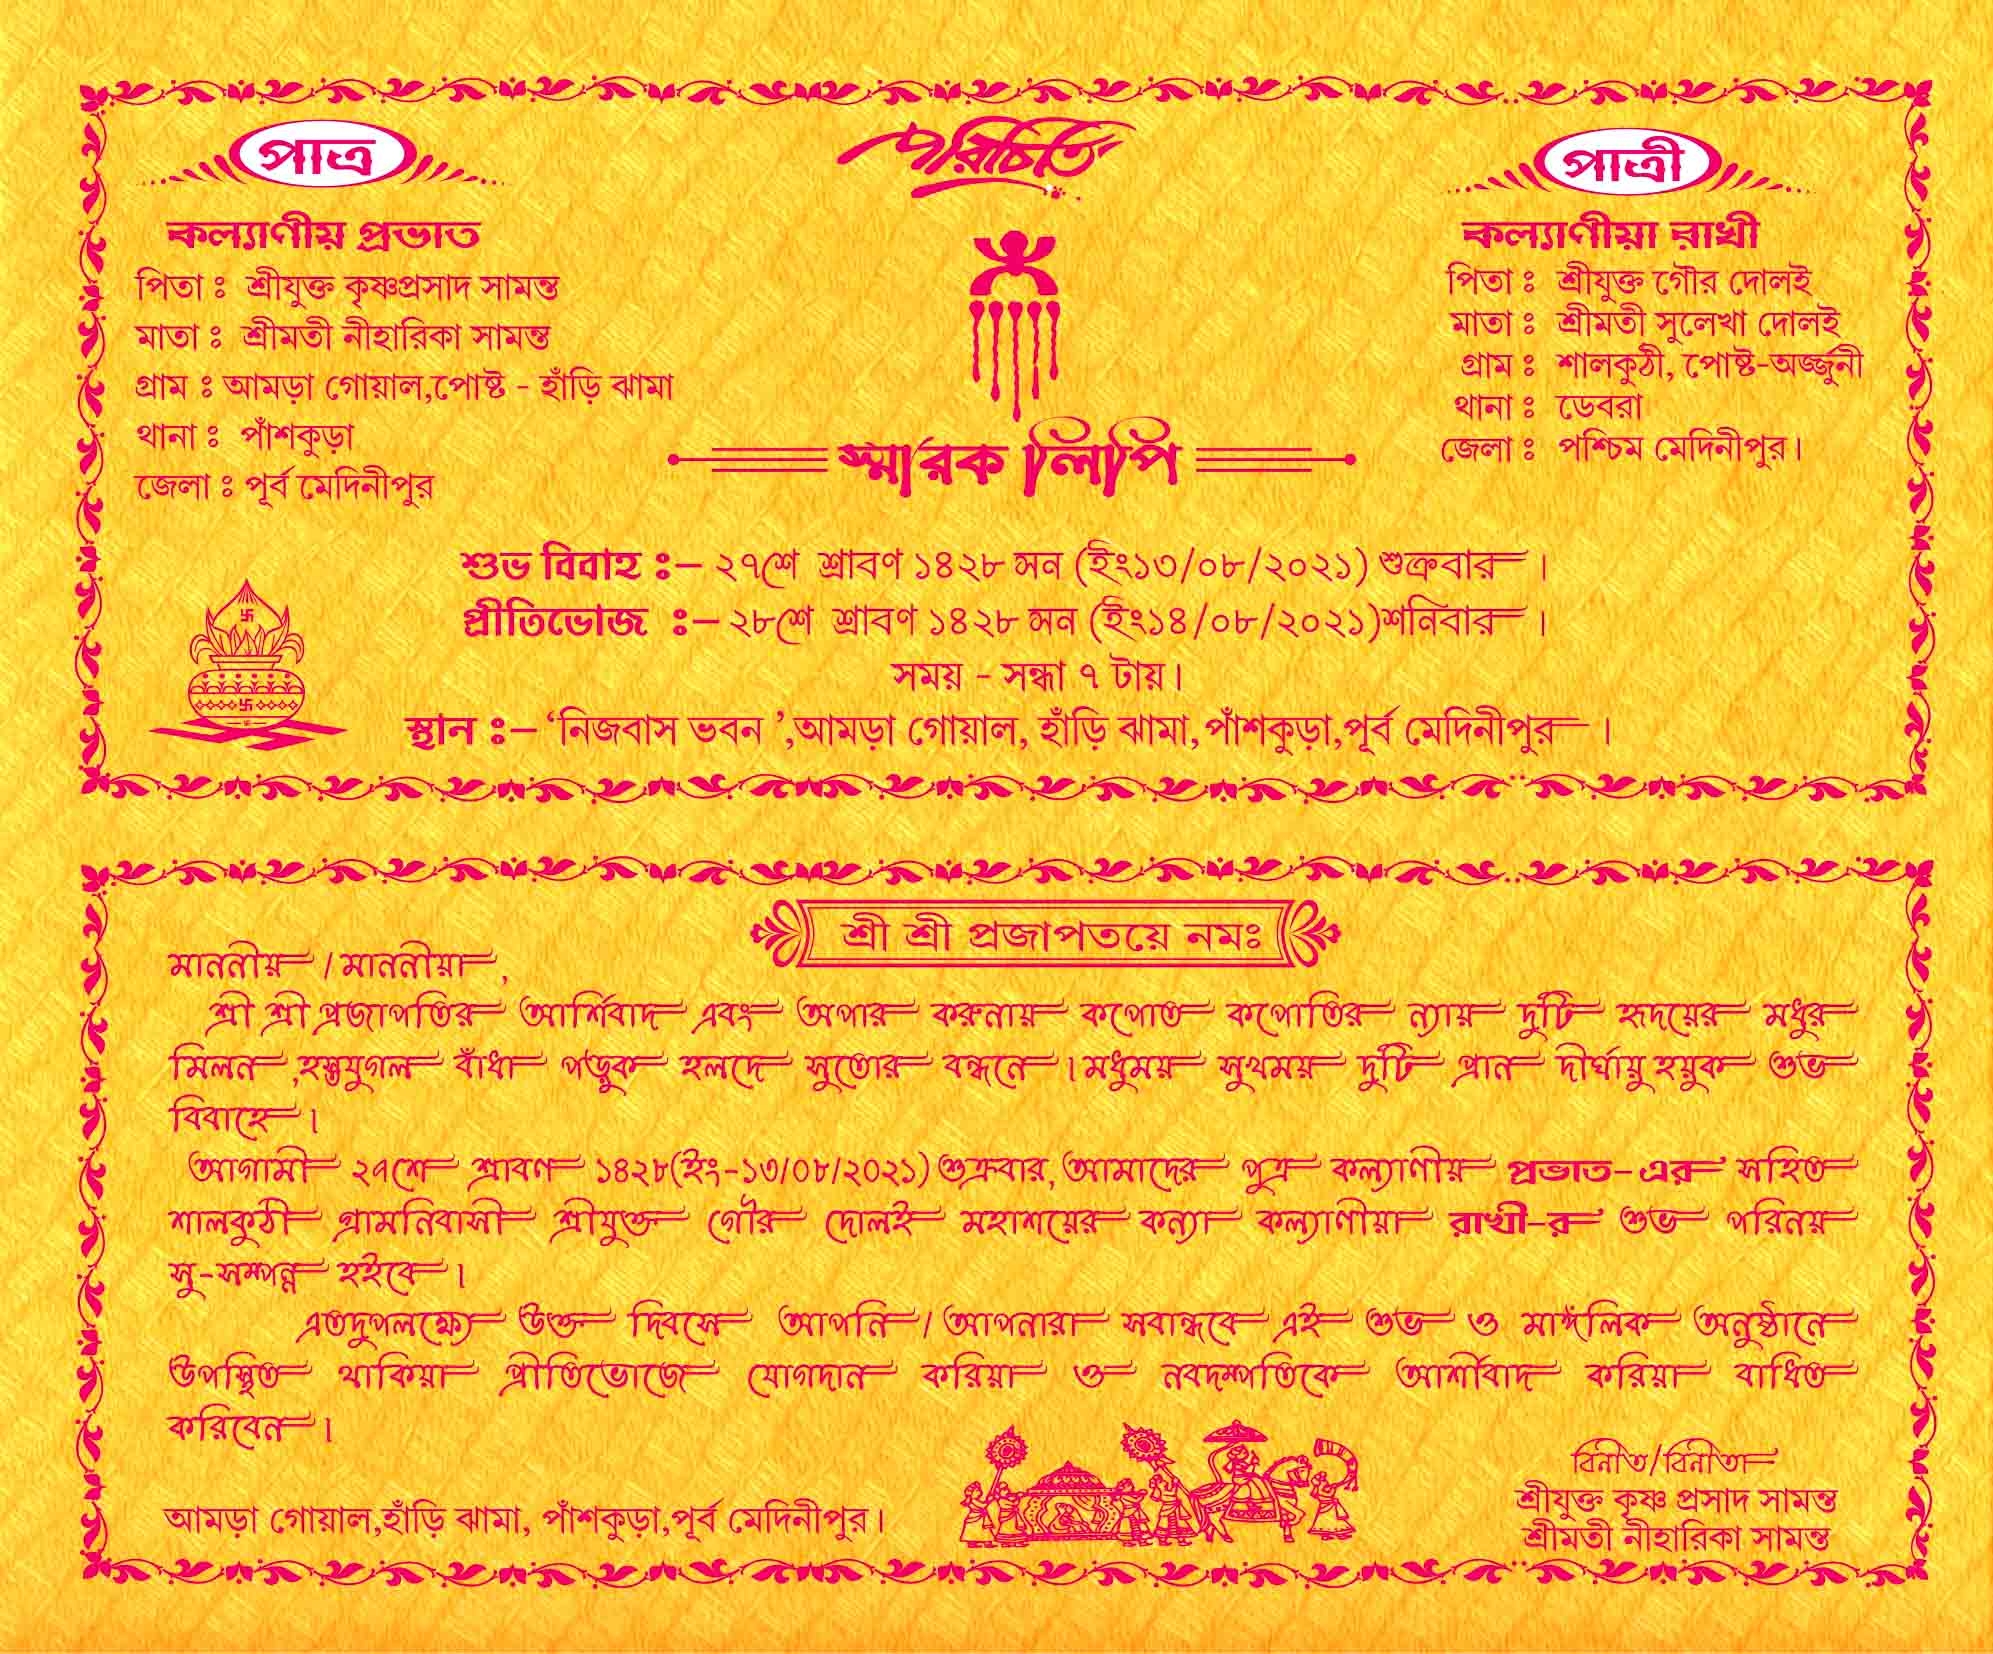 পরিচিতি
পাত্র
কল্যাণীয় প্রভাত
পিতা ঃ শ্রীযুক্ত কৃষ্ণপ্রসাদ সামন্ত
মাতা ঃ শ্রীমতী নীহারিকা সামন্ত
গ্রাম ঃ আমড়া গোয়াল,পোষ্ট - হাঁড়ি ঝামা
থানা ঃ পাঁশকুড়া
জেলা ঃ পূর্ব মেদিনীপুর
পাত্রী
কল্যাণীয়া রাখী
পিতা ঃ শ্রীযুক্ত গৌর দোলই
মাতা ঃ শ্রীমতী সুলেখা দোলই
গ্রাম ঃ শালকুঠী, পোষ্ট-অর্জ্জুনী
থানা ঃ ডেবরা
জেলা ঃ পশ্চিম মেদিনীপুর।
স্মারক লিপি
শুভ বিবাহ ঃ– ২৭শে শ্রাবণ ১৪২৮ সন (ইং১৩/০৮/২০২১) শুক্রবার।
প্রীতিভোজ ঃ– ২৮শে শ্রাবণ ১৪২৮ সন (ইং১৪/০৮/২০২১)শনিবার।
সময় - সন্ধা ৭ টায়।
স্থান ঃ– ‘নিজবাস ভবন ’,আমড়া গোয়াল, হাঁড়ি ঝামা,পাঁশকুড়া,পূর্ব মেদিনীপুর।
শ্রী শ্রী প্রজাপতয়ে নমঃ
মাননীয়/মাননীয়া,
শ্রী শ্রী প্রজাপতির আর্শিবাদ এবং অপার করুনায় কপোত কপোতির ন্যায় দুটি হৃদয়ের মধুর
মিলন,হস্তযুগল বাঁধা পড়ুক হলদে সুতোর বন্ধনে। মধুময় সুখময় দুটি প্রান দীর্ঘায়ু হয়ুক শুভ
বিবাহে।
আগামী ২৭শে শ্রাবণ ১৪২৮(ইং-১৩/০৮/২০২১) শুক্রবার, আমাদের পুত্র কল্যাণীয় প্রভাত-এর সহিত
শালকুঠী গ্রামনিবাসী শ্রীযুক্ত গৌর দোলই মহাশয়ের কন্যা কল্যাণীয়া রাখী-র শুভ পরিনয়
সু-সম্পন্ন হইবে।
এতদুপলক্ষ্যে উক্ত দিবসে আপনি/আপনারা সবান্ধবে এই শুভ ও মাঙ্গলিক অনুষ্ঠানে
উপস্থিত থাকিয়া প্রীতিভোজে যোগদান করিয়া ও নবদম্পতিকে আর্শীবাদ করিয়া বাধিত
করিবেন।
বিনীত/বিনীতা
শ্রীযুক্ত কৃষ্ণ প্রসাদ সামন্ত
শ্রীমতী নীহারিকা সামন্ত
আমড়া গোয়াল,হাঁড়ি ঝামা, পাঁশকুড়া,পূর্ব মেদিনীপুর।